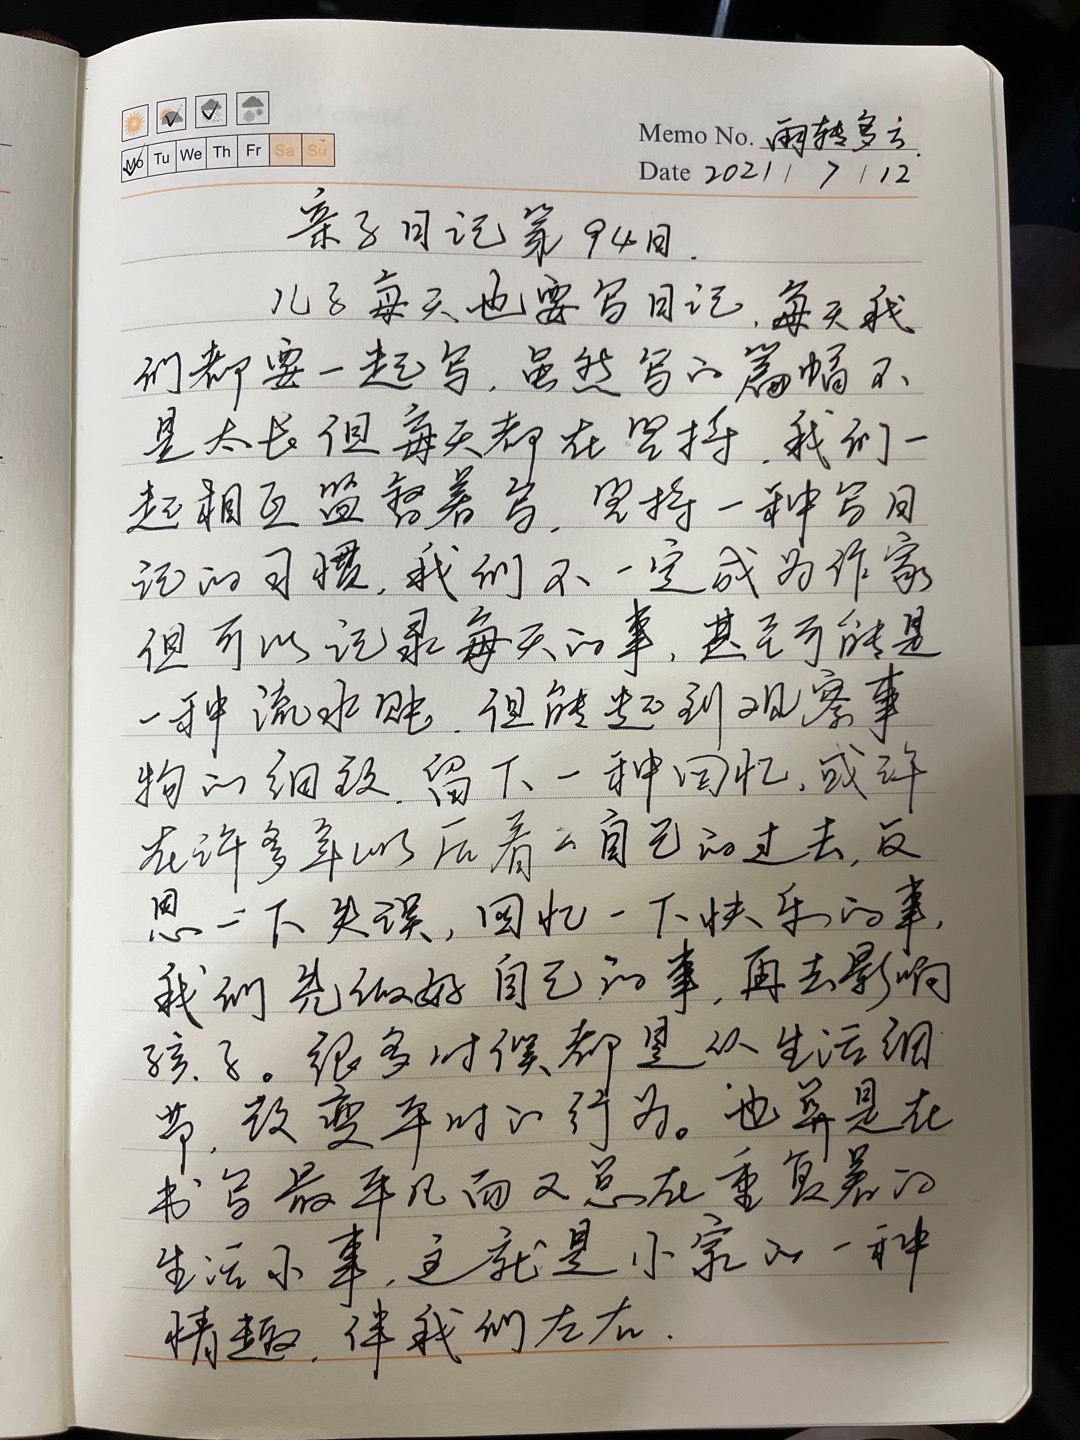 Memo No. 雨转多云.
Mo Tu We Th Fr Sa Su
Date 2021 / 7 / 12
亲子日记第94日.
儿子每天也要写日记,每天我
们都要一起写,虽然写的篇幅不
是太长但每天都在坚持,我们一
起相互监督着写,坚持一种写日
记的习惯,我们不一定成为作家
但可以记录每天的事,甚至可能是
一种流水账,但能起到观察事
物的细致,留下一种回忆,或许
在许多年以后看看自己的过去,反
思一下失误,回忆一下快乐的事,
我们先做好自己的事,再去影响
孩子。很多时候都是从生活细
节,改变平时的行为。也算是在
书写最平凡而又总在重复着的
生活小事,这就是小家的一种
情趣,伴我们左右.